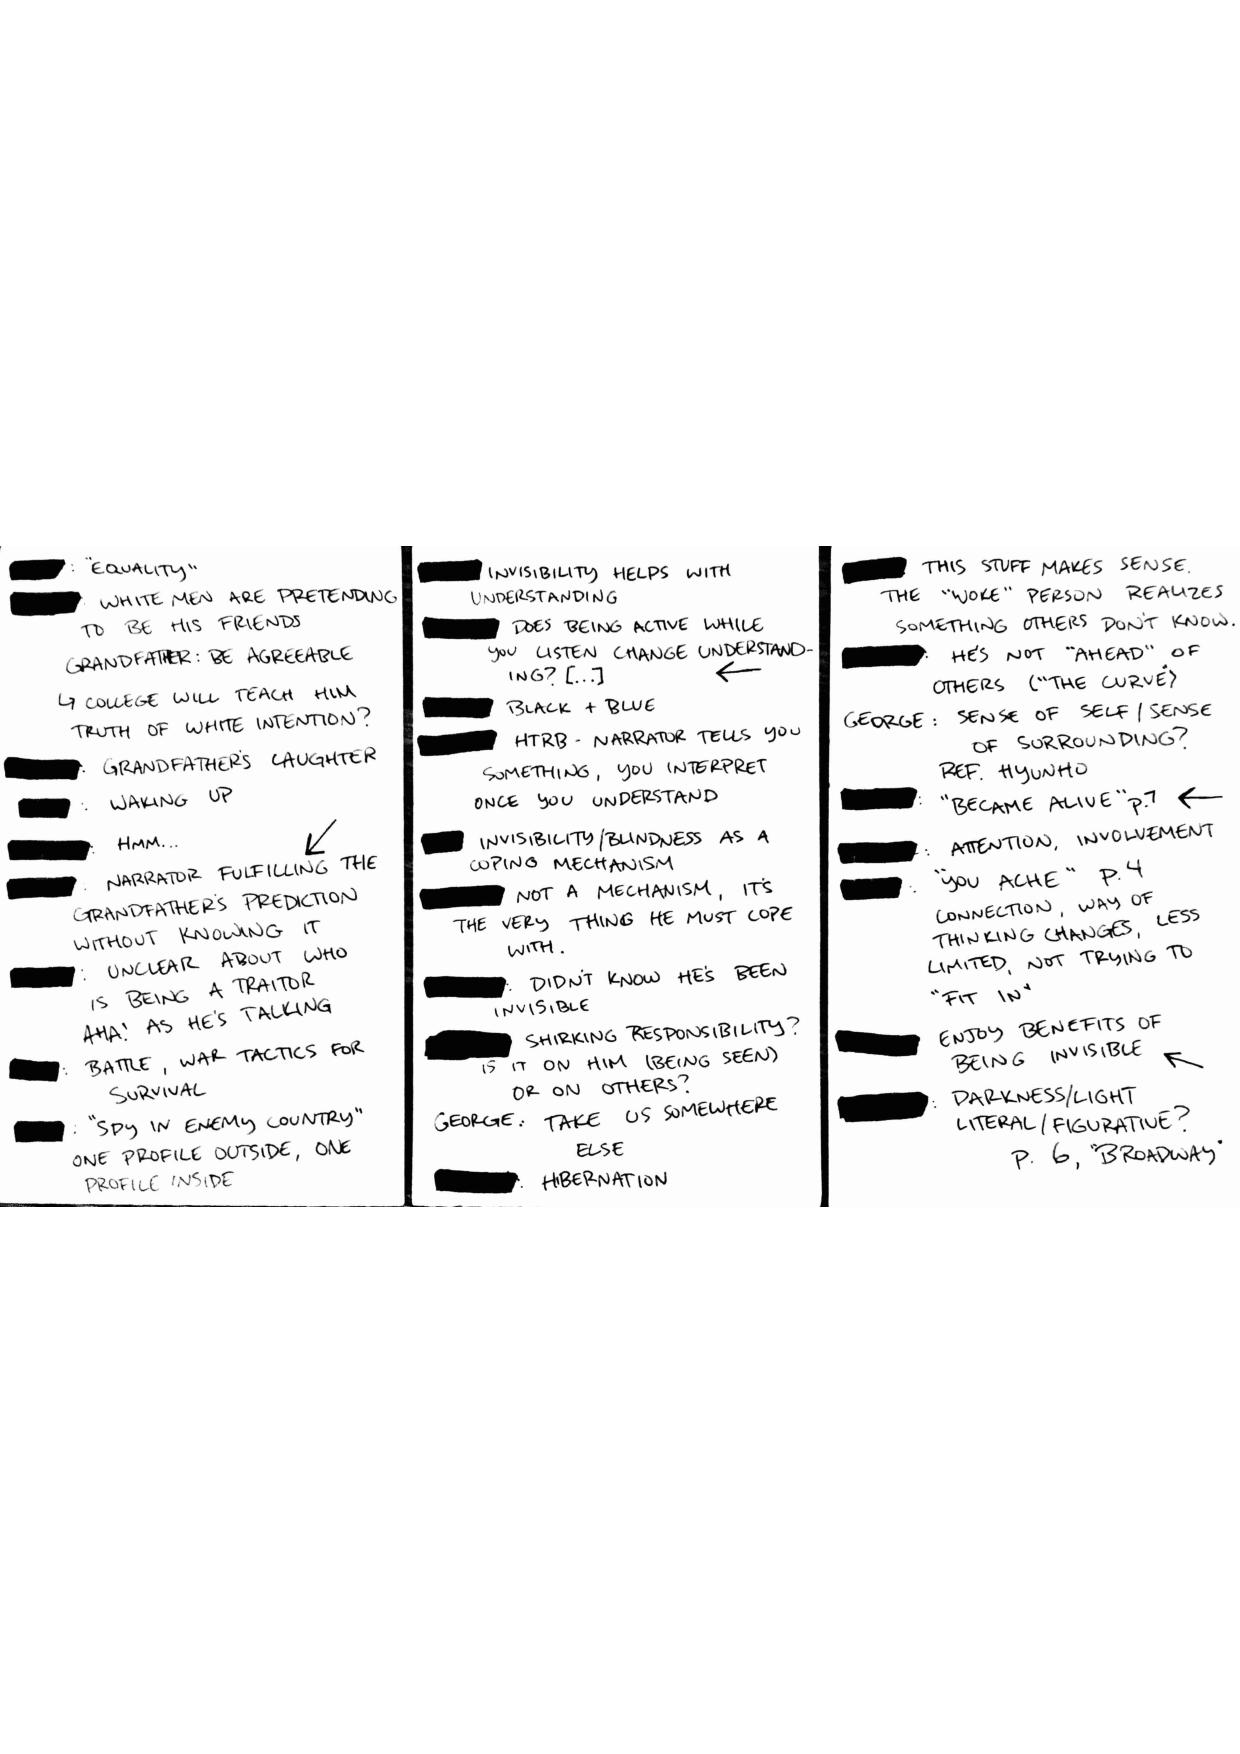 : "EQUALITY"
: WHITE MEN ARE PRETENDING
TO BE HIS FRIENDS
GRANDFATHER: BE AGREEABLE
↳ COLLEGE WILL TEACH HIM
TRUTH OF WHITE INTENTION?
: GRANDFATHER'S LAUGHTER
: WAKING UP
: HMM...
: NARRATOR FULFILLING THE
GRANDFATHER'S PREDICTION
WITHOUT KNOWING IT
: UNCLEAR ABOUT WHO
IS BEING A TRAITOR
AHA! AS HE'S TALKING
: BATTLE, WAR TACTICS FOR
SURVIVAL
: "SPY IN ENEMY COUNTRY"
ONE PROFILE OUTSIDE, ONE
PROFILE INSIDE
INVISIBILITY HELPS WITH
UNDERSTANDING
DOES BEING ACTIVE WHILE
YOU LISTEN CHANGE UNDERSTAND-
ING? [...] ←
BLACK + BLUE
HTRB - NARRATOR TELLS YOU
SOMETHING, YOU INTERPRET
ONCE YOU UNDERSTAND
INVISIBILITY/BLINDNESS AS A
COPING MECHANISM
NOT A MECHANISM, IT'S
THE VERY THING HE MUST COPE
WITH.
: DIDN'T KNOW HE'S BEEN
INVISIBLE
SHIRKING RESPONSIBILITY?
IS IT ON HIM (BEING SEEN)
OR ON OTHERS?
GEORGE: TAKE US SOMEWHERE
ELSE
: HIBERNATION
THIS STUFF MAKES SENSE.
THE "WOKE" PERSON REALIZES
SOMETHING OTHERS DON'T KNOW.
: HE'S NOT "AHEAD" OF
OTHERS ("THE CURVE")
GEORGE: SENSE OF SELF/SENSE
OF SURROUNDING?
REF. HYUNHO
: "BECAME ALIVE" p.7 ←
: ATTENTION, INVOLVEMENT
: "YOU ACHE" P.4
CONNECTION, WAY OF
THINKING CHANGES, LESS
LIMITED, NOT TRYING TO
"FIT IN"
ENJOY BENEFITS OF
BEING INVISIBLE
: DARKNESS/LIGHT
LITERAL/FIGURATIVE?
P. 6, "BROADWAY"